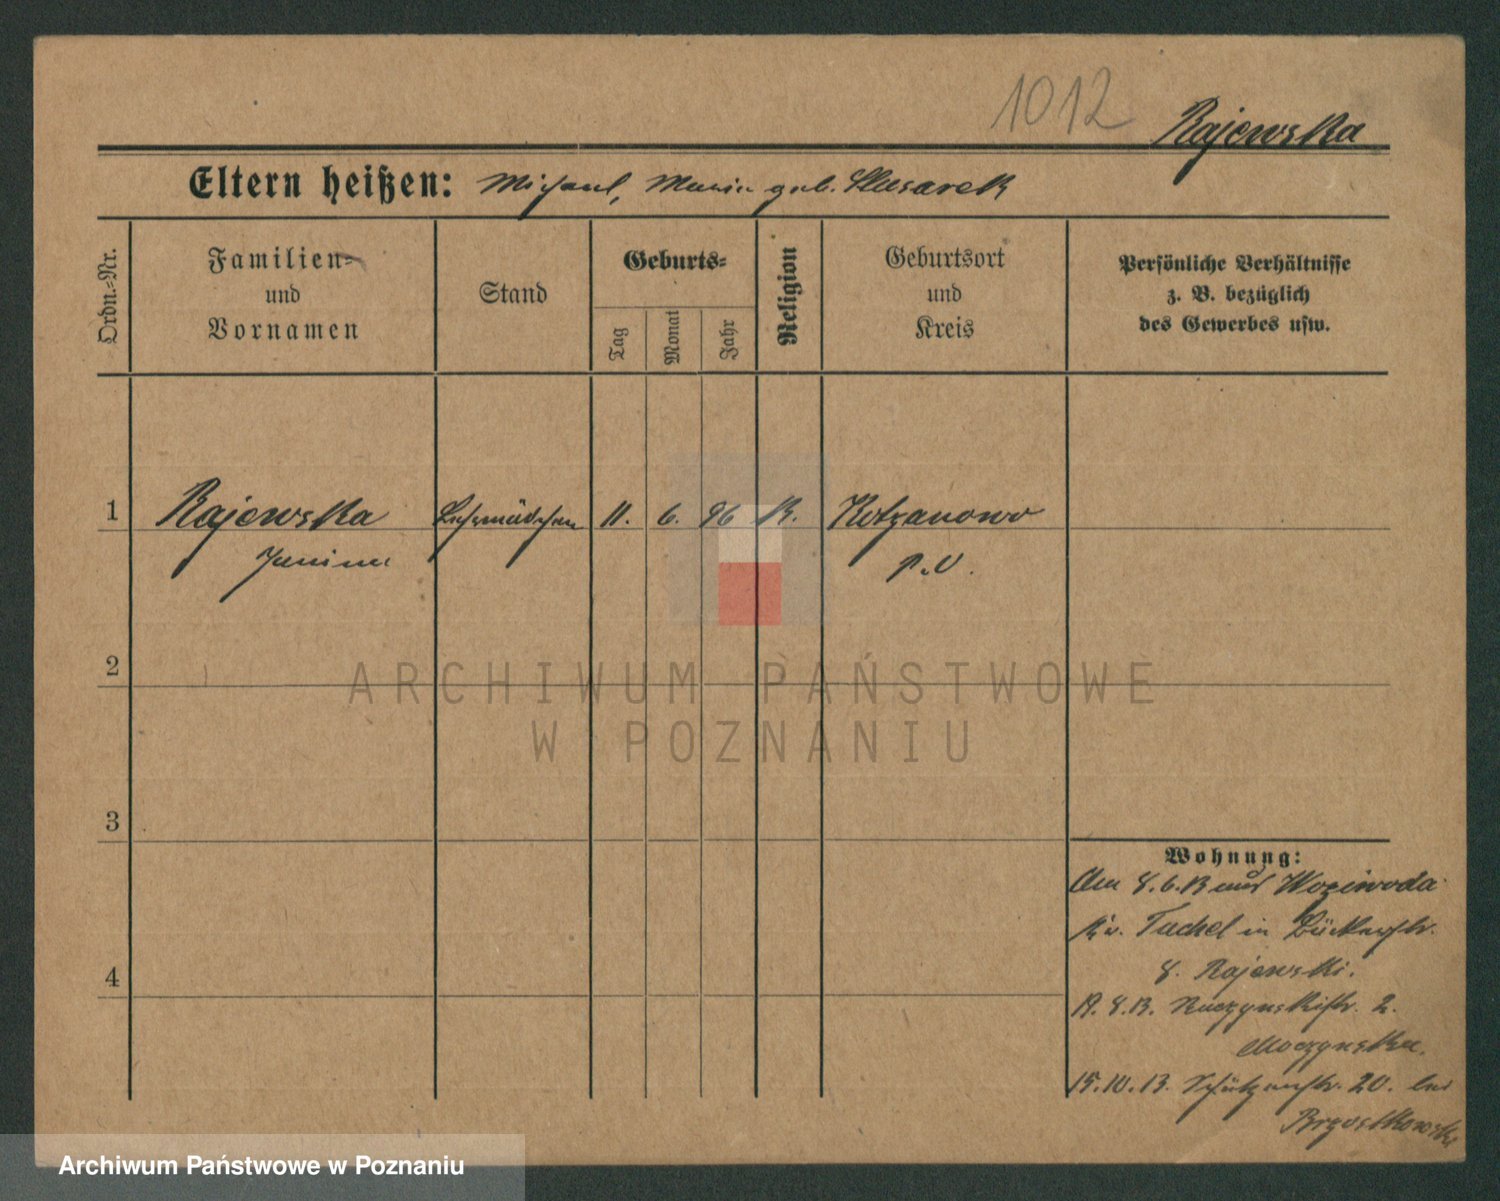 1012 Rajewska
Eltern heißen: Michael, Maria geb. Slusarek
Ordn.=Nr.
Familien=
und
Vornamen
Stand
Geburts=
Tag
Monat
Jahr
Religion
Geburtsort
und
Kreis
Persönliche Verhältnisse
z. B. bezüglich
des Gewerbes usw.
1 Rajewska Lehrmädchen 11. 6. 96 K. Kotzanowo
Janina P. O.
2
3
4
Wohnung:
Am 8.6.13 aus Woziwoda
Kr. Tuchel in Bäckerstr.
8. Rajewski.
19.8.13. Raczynskistr. 2.
Moczynska.
15.10.13. Schützenstr. 20. bei
Brzostkowska
ARCHIWUM PAŃSTWOWE
W POZNANIU
Archiwum Państwowe w Poznaniu